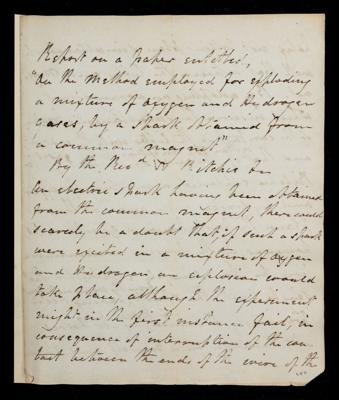 Report on a paper entitled,
"On the Method employed for exploding
a mixture of Oxygen and Hydrogen
gases, by a spark obtained from
a common magnet"
By the Revd. Ritchie
An electric spark having been obtained
from the common magnet, there could
scarcely be a doubt that, if such a spark
were excited in a mixture of Oxygen
and Hydrogen, an explosion would
take place, although the experiment
might in the first instance fail, in
consequence of interruption of the con-
tact between the ends of the wire of the